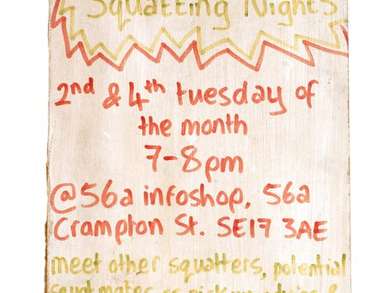 Squatting Nights
2nd & 4th tuesday of
the month
7-8pm
@56a infoshop, 56a
Crampton St. SE17 3AE
meet other squatters, potential
squat mates or pick up advice &